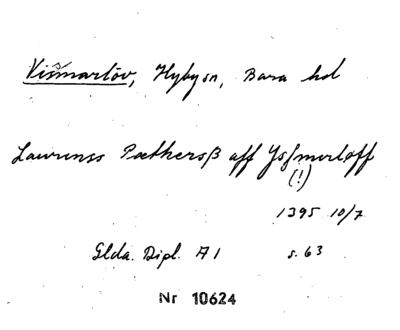 Vismarlöv, Hyby sn, Bara hd
Laurenss Pæthersß aff Ysſmerloff
(!)
1395 10/7
Glda. Dipl. A 1 s. 63
Nr 10624